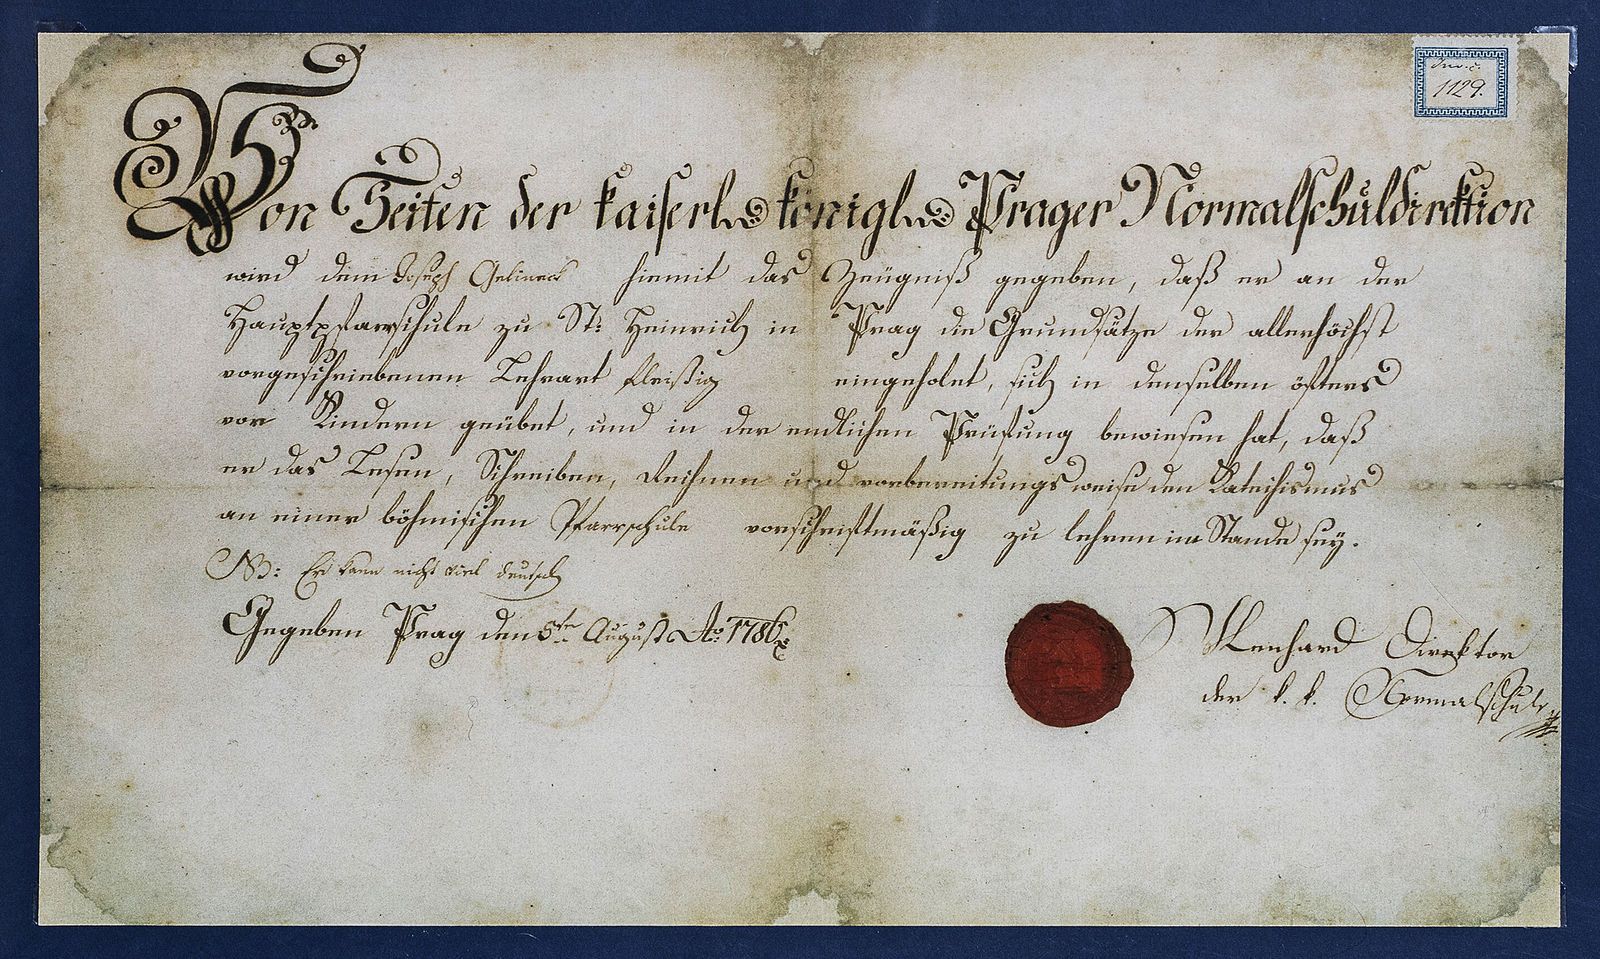 Inv. č.
1129.
Von Seiten der kaiserl. königl. Prager Normalschuldirektion
wird dem Joseph Gelineck hiemit das Zeügniß gegeben, daß er an der
Hauptpfarrschule zu St: Heinrich in Prag die Grundsätze der allerhöchst
vorgeschriebenen Lehrart fleißig eingeholet, sich in denselben öfters
vor Kindern geübet, und in der endlichen Prüfung bewiesen hat, daß
er das Lesen, Schreiben, Rechnen und vorbereitungsweise den Kateichismus
an einer böhmischen Pfarrschule vorschriftmäßig zu lehren im Stande sey.
NB: Er kann nicht viel deutsch
Gegeben Prag den 5ten August Ao: 1786
Direktor
der k. k. Normalschule